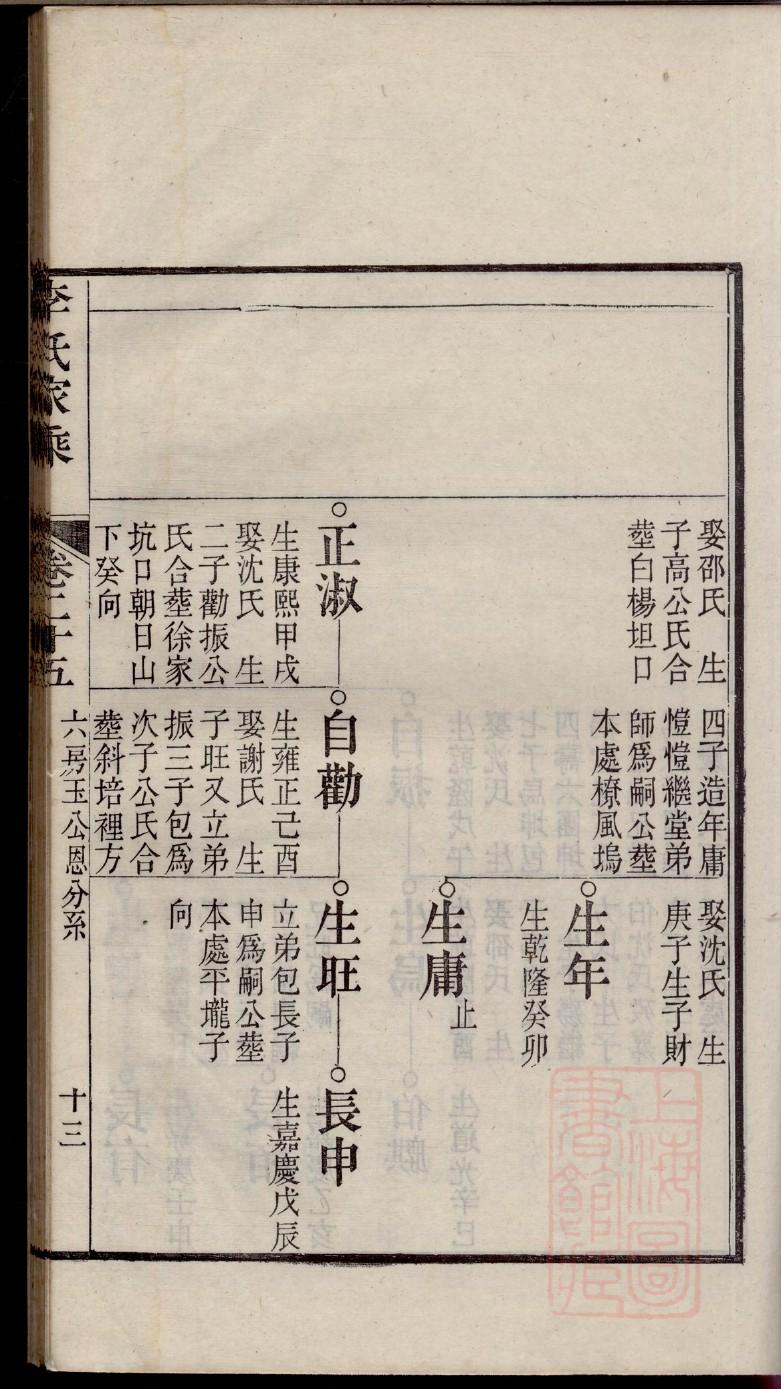 娶邵氏　生
子高公氏合
塟白楊坦口
四子造年庸
愷愷繼堂弟
師爲嗣公塟
本處橑風塢
娶沈氏　生
庚子生子財
生年
生乾隆癸卯
生庸
止
正淑
生康熙甲戌
娶沈氏　生
二子勸振公
氏合塟徐家
坑口朝日山
下癸向
自勸
生雍正己酉
娶謝氏　生
子旺又立弟
振三子包爲
次子公氏合
塟斜培裡方
生旺
立弟包長子
申爲嗣公塟
本處平壠子
向
長申
生嘉慶戊辰
李氏家乘
卷二十五
六房玉公恩分系
十三
上海圖
書館藏